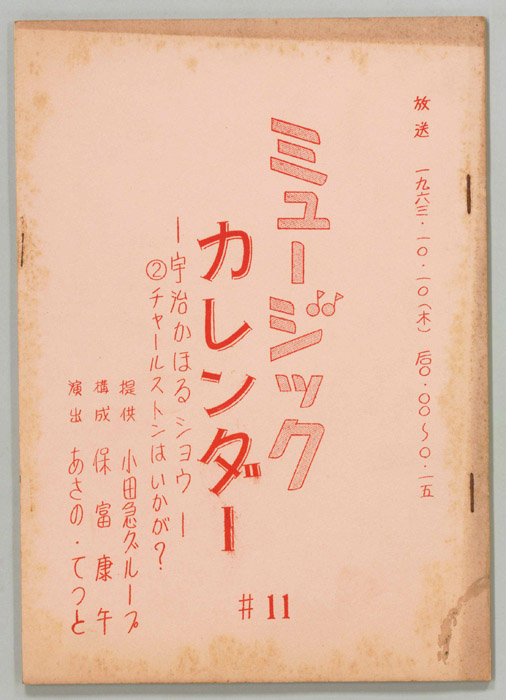 放送 一九六三・一〇・一〇(木) 后〇・〇〇～〇・一五
ミュージック
カレンダー
ー宇治かほる ショウー
②チャールストンはいかが?
提供 小田急グループ
構成 保富康午
演出 あさの・てつと
#11